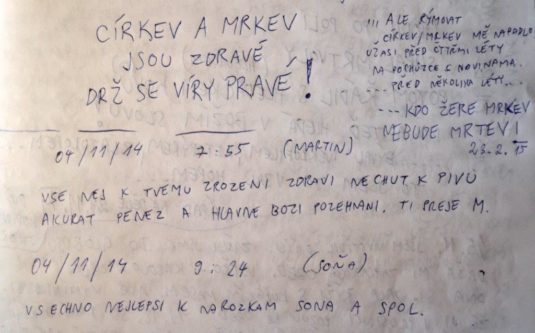 CÍRKEV A MRKEV
JSOU ZDRAVÉ
DRŽ SE VÍRY PRAVÉ!
!!! ALE RÝMOVAT
CÍRKEV/MRKEV MĚ NAPADLO
UŽ ASI PŘED ČTYŘMI LÉTY
NA POCHŮZCE S NOVINAMA.
...PŘED NĚKOLIKA LÉTY...
...KDO ŽERE MRKEV
NEBUDE MRTEV!
23.2.15
04/11/14 7:55 (MARTIN)
VSE NEJ K TVEMU ZROZENI ZDRAVI NECHUT K PIVU
AKURAT PENEZ A HLAVNE BOZI POZEHNANI. TI PREJE M.
04/11/14 9:24 (SOŇA)
VSECHNO NEJLEPSI K NAROZKAM SONA A SPOL.